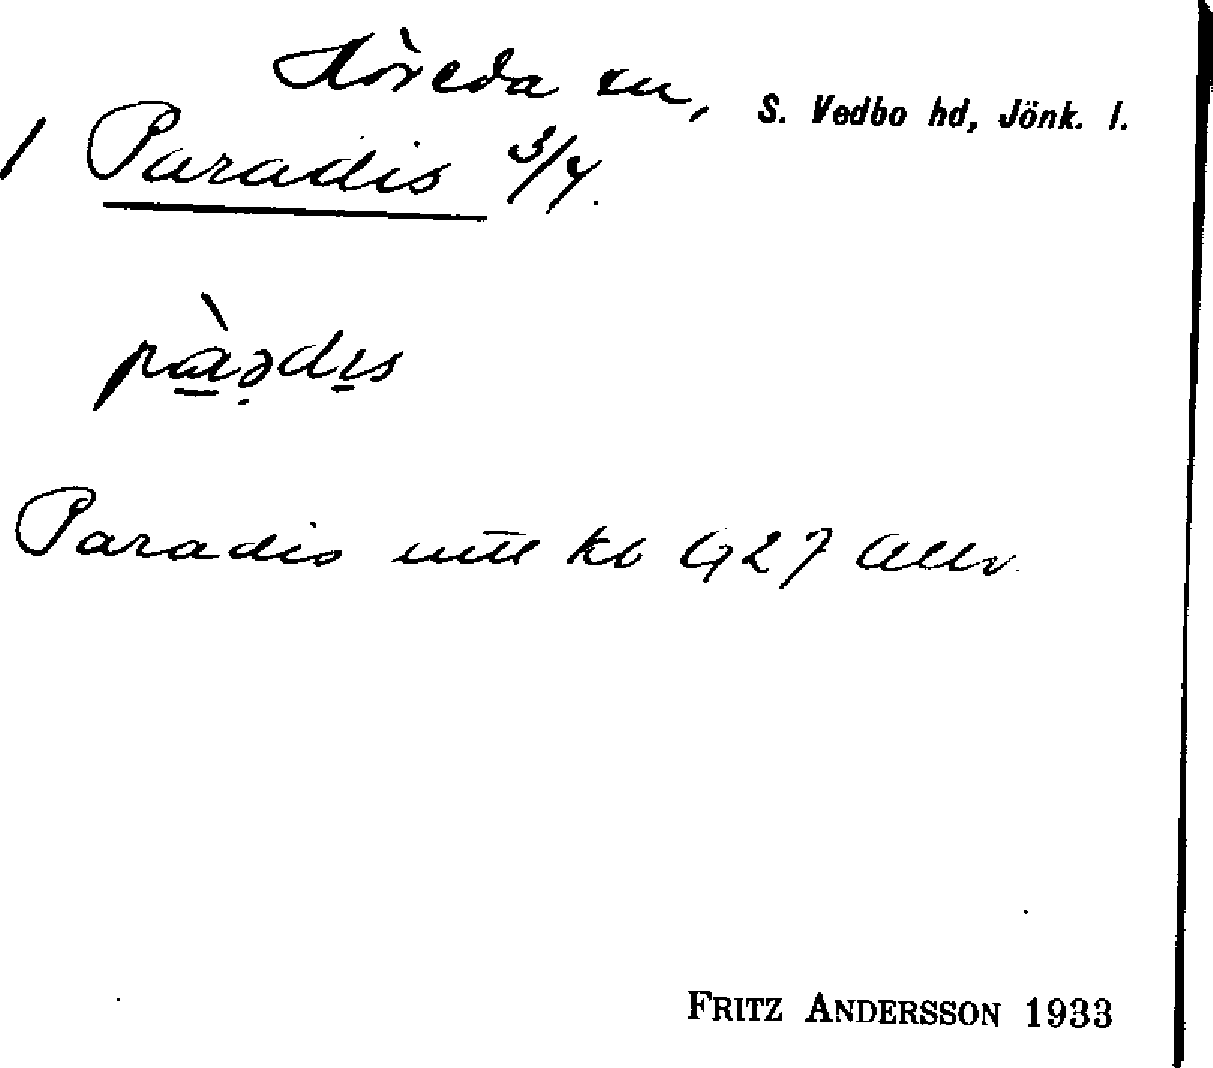 Höreda sn, S. Vedbo hd, Jönk. l.
1 Paradis 3/4.
Paradis utt kb G27 Allv
FRITZ ANDERSSON 1933